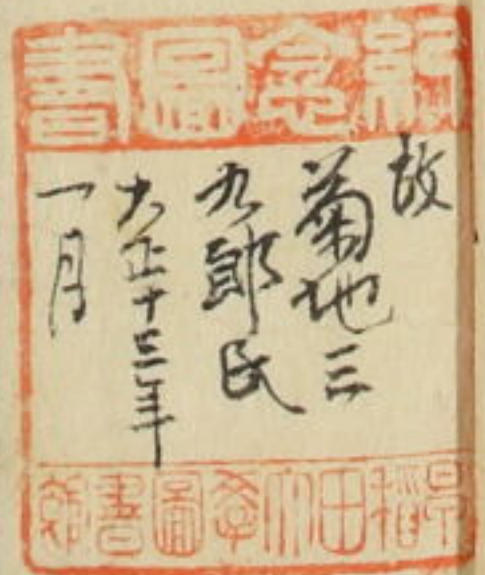 紀念圖書
故
菊地三
九郎氏
大正十三年
一月
早稲田大學圖書館